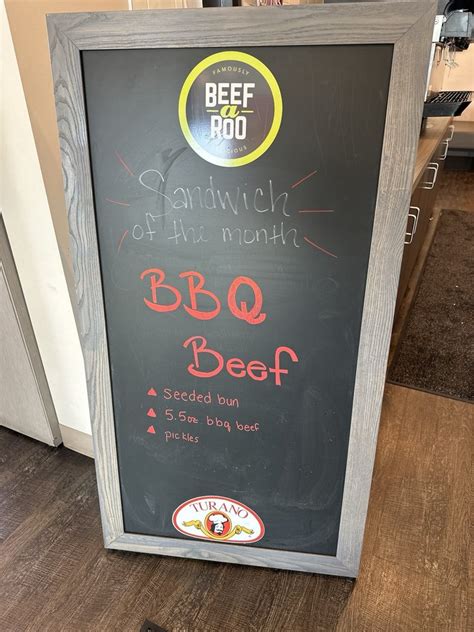 FAMOUSLY
BEEF
a
ROO
Sandwich
of the month
BBQ
Beef
Seeded bun
5.5oz bbq beef
pickles
TURANO